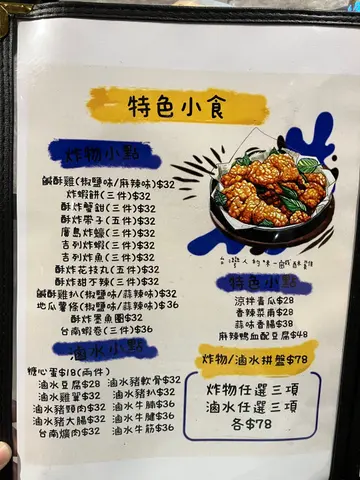 特色小食
炸物小點
鹹酥雞(椒鹽味/麻辣味)$32
炸蝦餅(三件)$32
酥炸蟹鉗(三件)$32
酥炸帶子(五件)$32
廣島炸蠔(三件)$32
吉列炸蝦(三件)$32
吉列炸魚(三件)$32
酥炸花枝丸(五件)$32
酥炸甜不辣(三件)$32
鹹酥雞扒(椒鹽味/蒜辣味)$32
地瓜薯條(椒鹽味/蒜辣味)$36
酥炸墨魚圈$32
台南蝦卷(三件)$36
台灣人的味-鹹酥雞
特色小點
涼拌青瓜$28
香辣菜甫$28
蒜味香腸$38
麻辣鴨血配豆腐$48
滷水小點
糖心蛋$18(兩件)
滷水豆腐$28 滷水豬軟骨$32
滷水雞翼$32 滷水豬扒$32
滷水豬頸肉$32 滷水牛腩$36
滷水豬大腸$32 滷水牛腱$36
台南爌肉$32 滷水牛筋$36
炸物/滷水拼盤$78
炸物任選三項
滷水任選三項
各$78